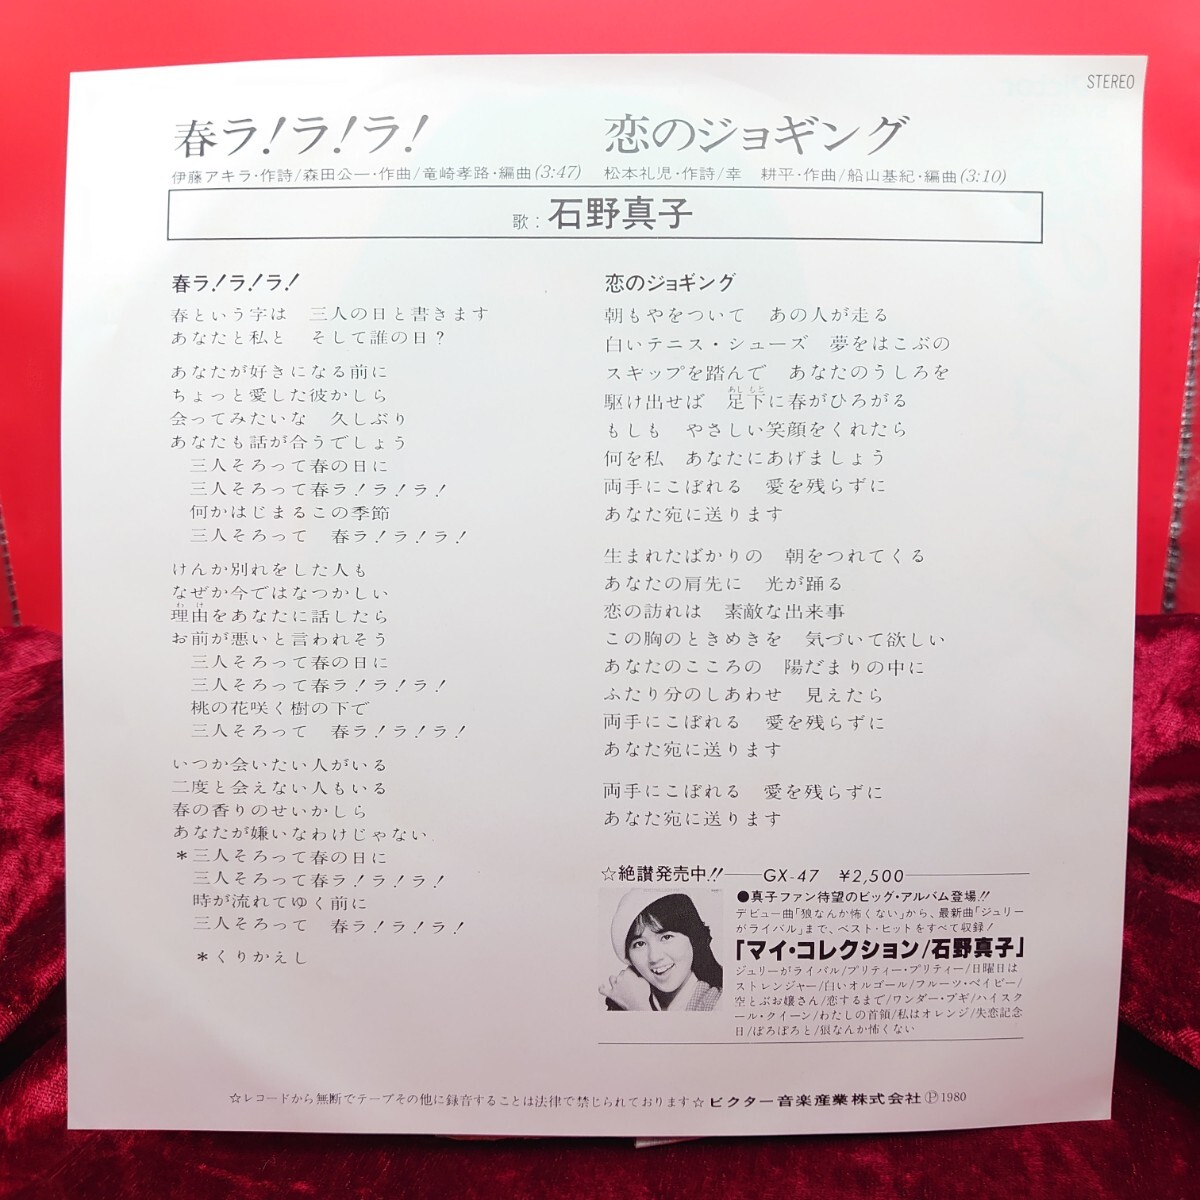 STEREO
春ラ!ラ!ラ!
伊藤アキラ・作詩/森田公一・作曲/竜崎孝路・編曲(3:47)
恋のジョギング
松本礼児・作詩/幸　耕平・作曲/船山基紀・編曲(3:10)
歌：石野真子
春ラ!ラ!ラ!
春という字は　三人の日と書きます
あなたと私と　そして誰の日?
あなたが好きになる前に
ちょっと愛した彼かしら
会ってみたいな　久しぶり
あなたも話が合うでしょう
三人そろって春の日に
三人そろって春ラ!ラ!ラ!
何かはじまるこの季節
三人そろって　春ラ!ラ!ラ!
けんか別れをした人も
なぜか今ではなつかしい
理由をあなたに話したら
わけ
お前が悪いと言われそう
三人そろって春の日に
三人そろって春ラ!ラ!ラ!
桃の花咲く樹の下で
三人そろって　春ラ!ラ!ラ!
いつか会いたい人がいる
二度と会えない人もいる
春の香りのせいかしら
あなたが嫌いなわけじゃない
*三人そろって春の日に
三人そろって春ラ!ラ!ラ!
時が流れてゆく前に
三人そろって　春ラ!ラ!ラ!
*くりかえし
恋のジョギング
朝もやをついて　あの人が走る
白いテニス・シューズ　夢をはこぶの
スキップを踏んで　あなたのうしろを
駆け出せば　足下に春がひろがる
あしもと
もしも　やさしい笑顔をくれたら
何を私　あなたにあげましょう
両手にこぼれる　愛を残らずに
あなた宛に送ります
生まれたばかりの　朝をつれてくる
あなたの肩先に　光が踊る
恋の訪れは　素敵な出来事
この胸のときめきを　気づいて欲しい
あなたのこころの　陽だまりの中に
ふたり分のしあわせ　見えたら
両手にこぼれる　愛を残らずに
あなた宛に送ります
両手にこぼれる　愛を残らずに
あなた宛に送ります
☆絶讃発売中!!――GX-47　¥2,500――
●真子ファン待望のビッグ・アルバム登場!!
デビュー曲「狼なんか怖くない」から、最新曲「ジュリー
がライバル」まで、ベスト・ヒットをすべて収録!
「マイ・コレクション/石野真子」
ジュリーがライバル/プリティー・プリティー/日曜日は
ストレンジャー/白いオルゴール/フルーツ・ベイビー/
空とぶお嬢さん/恋するまで/ワンダー・ブギ/ハイスク
ール・クイーン/わたしの首領/私はオレンジ/失恋記念
日/ぽろぽろと/狼なんか怖くない
☆レコードから無断でテープその他に録音することは法律で禁じられております☆ビクター音楽産業株式会社Ⓟ1980